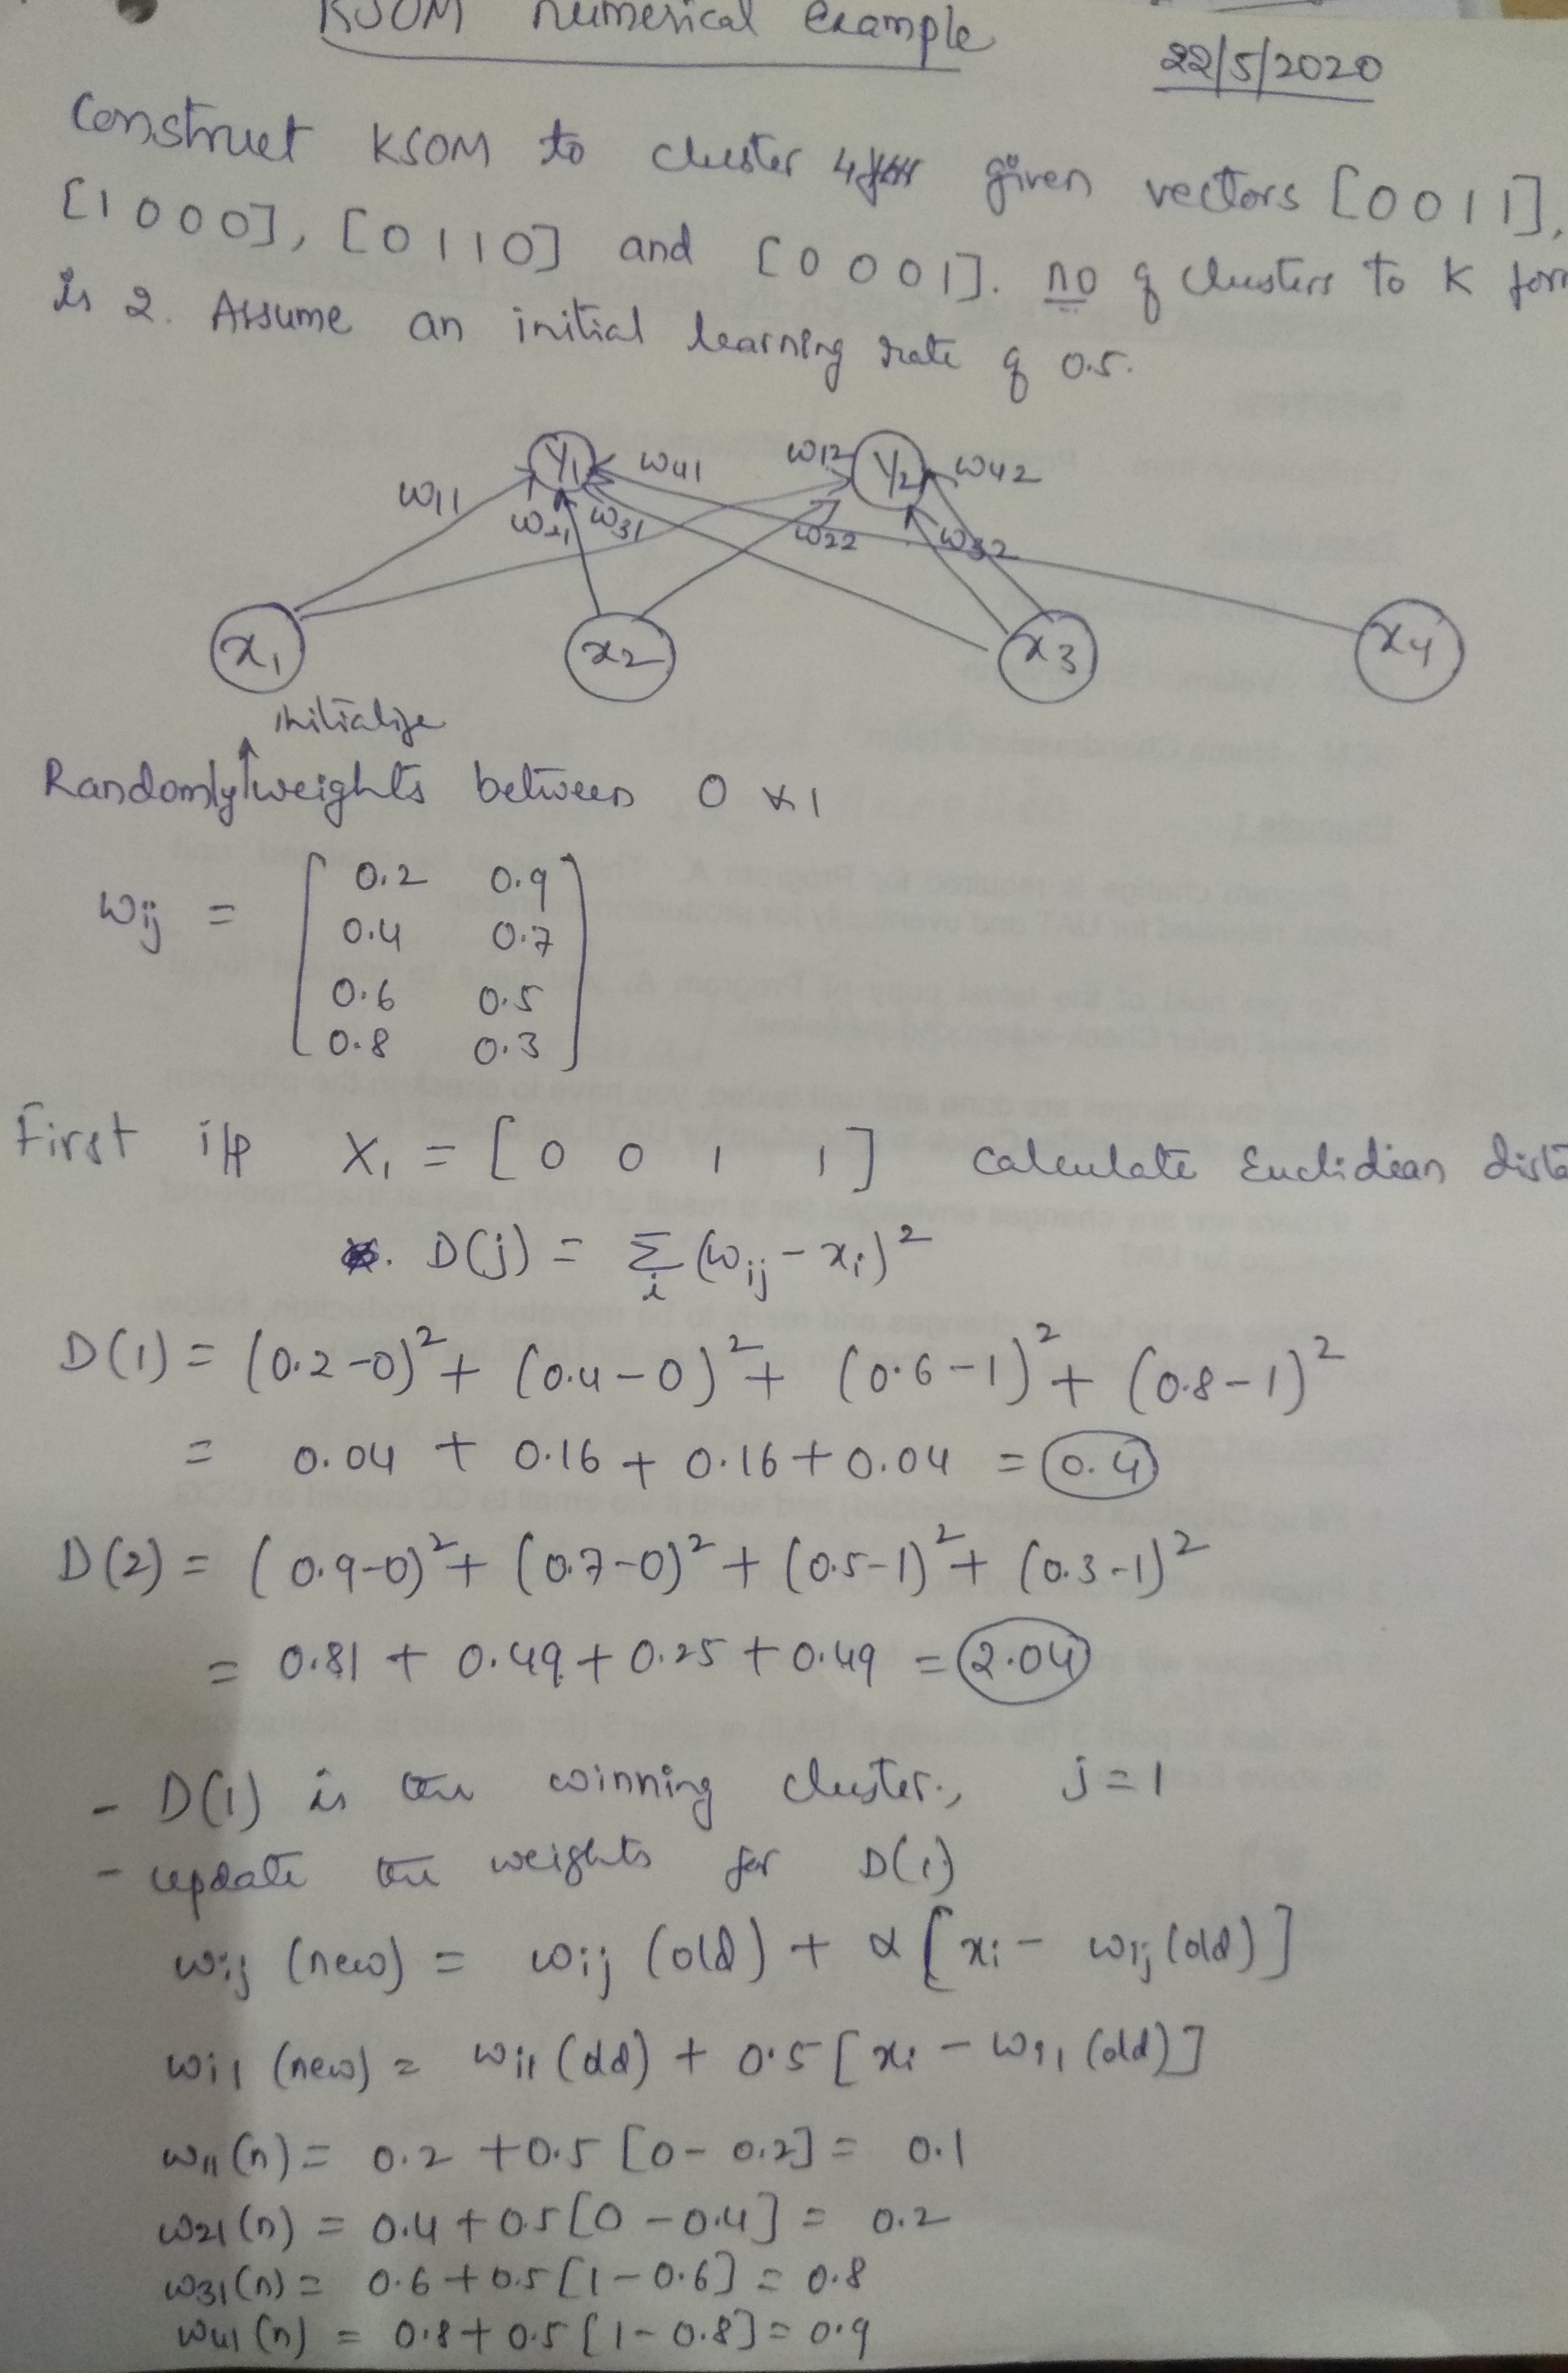 KSOM Numerical Example
22/5/2020
Construct KSOM to cluster 4 given vectors [0 0 1 1],
[1 0 0 0], [0 1 1 0] and [0 0 0 1]. no of clusters to K form
is 2. Assume an initial learning rate of 0.5.
Y1 Y2
w11 w21 w31 w41 w12 w22 w32 w42
x1 x2 x3 x4
initialize
Randomly weights between 0 & 1
wij = [ 0.2 0.9
0.4 0.7
0.6 0.5
0.8 0.3 ]
First i/p X1 = [ 0 0 1 1 ] calculate Euclidian dista
D(j) = Σi (wij - xi)²
D(1) = (0.2-0)² + (0.4-0)² + (0.6-1)² + (0.8-1)²
= 0.04 + 0.16 + 0.16 + 0.04 = 0.4
D(2) = (0.9-0)² + (0.7-0)² + (0.5-1)² + (0.3-1)²
= 0.81 + 0.49 + 0.25 + 0.49 = 2.04
- D(1) is the winning cluster, j=1
- update the weights for D(1)
wij (new) = wij (old) + α [xi - wij (old)]
wi1 (new) = wi1 (old) + 0.5 [xi - wi1 (old)]
w11(n) = 0.2 + 0.5 [0 - 0.2] = 0.1
w21(n) = 0.4 + 0.5 [0 - 0.4] = 0.2
w31(n) = 0.6 + 0.5 [1 - 0.6] = 0.8
w41(n) = 0.8 + 0.5 [1 - 0.8] = 0.9